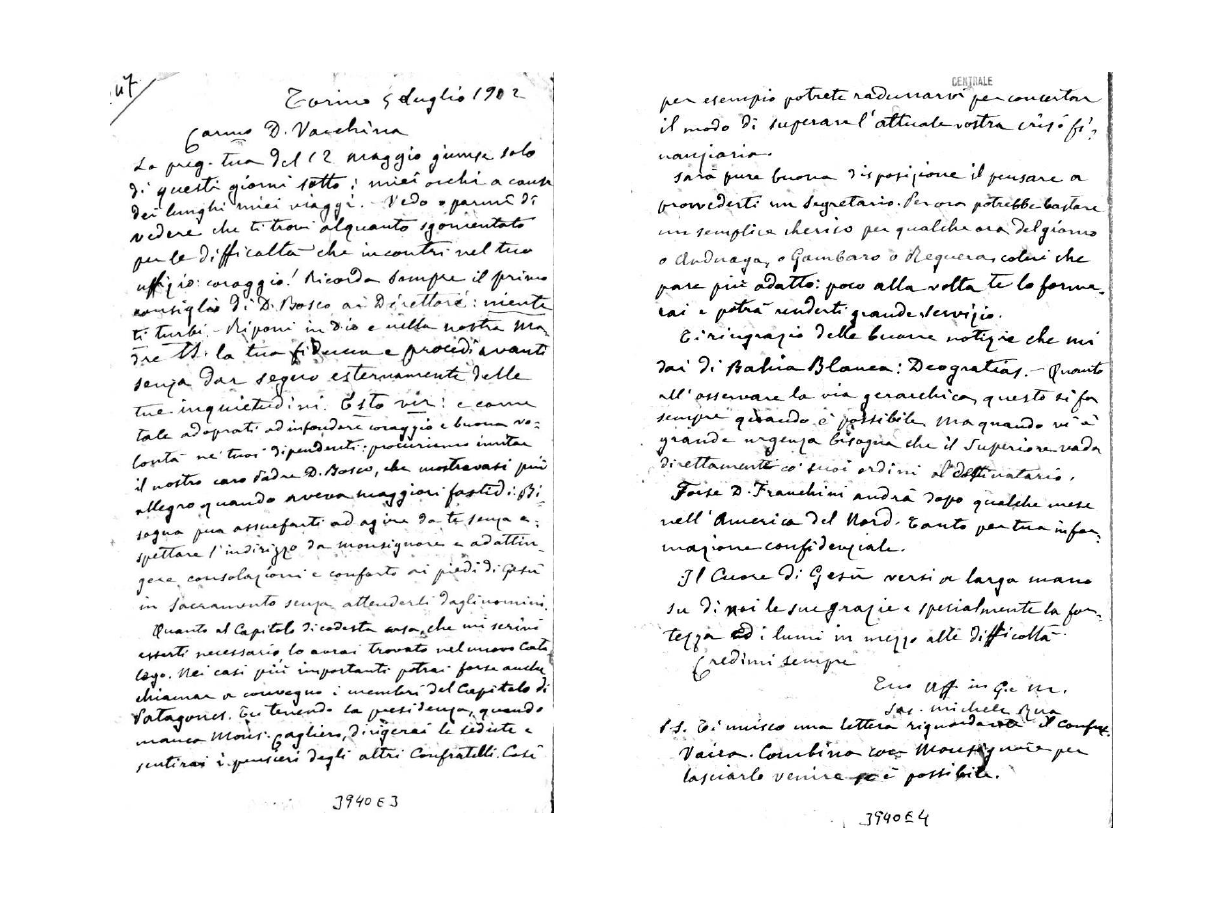 47
Torino 5 Luglio 1902
Carmo D. Vacchina
La preg. tua del 12 maggio giunse solo
di questi giorni sotto i miei occhi a causa
dei lunghi miei viaggi. Vedo o parmi di
vedere che ti trovi alquanto sgomentato
per le difficoltà che incontri nel tuo
uffizio: coraggio! Ricorda sempre il primo
consiglio di D. Bosco ai Direttori: niente
ti turbi - Riponi in Dio e nella nostra Ma-
dre SS. la tua fiducia e procedi avanti
senza dar segno esternamente delle
tue inquietudini. Esto vir: e come
tale adoprati ad infondere coraggio e buona vo-
lontà ne' tuoi dipendenti: procuriamo imitar
il nostro caro Padre D. Bosco, che mostravasi più
allegro quando aveva maggiori fastidi. Bi-
sogna pua assuefarti ad agire da te senza a-
spettare l'indirizzo da monsignore e ad attin-
gere consolazioni e conforto ai piedi di Gesù
in Sacramento senza attenderli dagli uomini.
Quanto al Capitolo di codesta casa, che mi scrivi
esserti necessario lo avrai trovato nel nuovo Cata
logo. Nei casi più importanti potrai forse anche
chiamar a convegno i membri del Capitolo di
Patagones. Tu tenendo la presidenza, quando
manca Mons. Cagliero, dirigerai le sedute e
sentirai i pensieri degli altri Confratelli. Così
3940E3
CENTRALE
per esempio potrete radunarvi per concertar
il modo di superare l'attuale vostra crisi fi-
nanziaria.
Sarà pure buona disposizione il pensare a
provvederti un Segretario. Per ora potrebbe bastare
un semplice cherico per qualche ora del giorno
o Andruaga, o Gambaro o Reguera, colui che
pare più adatto: poco alla volta te lo forme-
rai e potrà renderti grande servizio.
Ti ringrazio delle buone notizie che mi
dai di Bahia Blanca: Deogratias. - Quanto
all'osservare la via gerarchica, questo si fa
sempre quando è possibile, ma quando vi è
grande urgenza bisogna che il Superiore vada
direttamente co' suoi ordini al destinatario.
Forse D. Franchini andrà dopo qualche mese
nell'America del Nord. Tanto per tua infor-
mazione confidenziale.
Il Cuore di Gesù versi a larga mano
su di noi le sue grazie e spesialmente la for-
tezza ed i lumi in mezzo alle difficoltà.
Credimi sempre
Tuo aff in G. e M.
Sac. Michele Rua
P.S. Ti unisco una lettera riguardante il Confre.
Vaira. Combina con Monsignore per
lasciarlo venire se è possibile.
3940E4